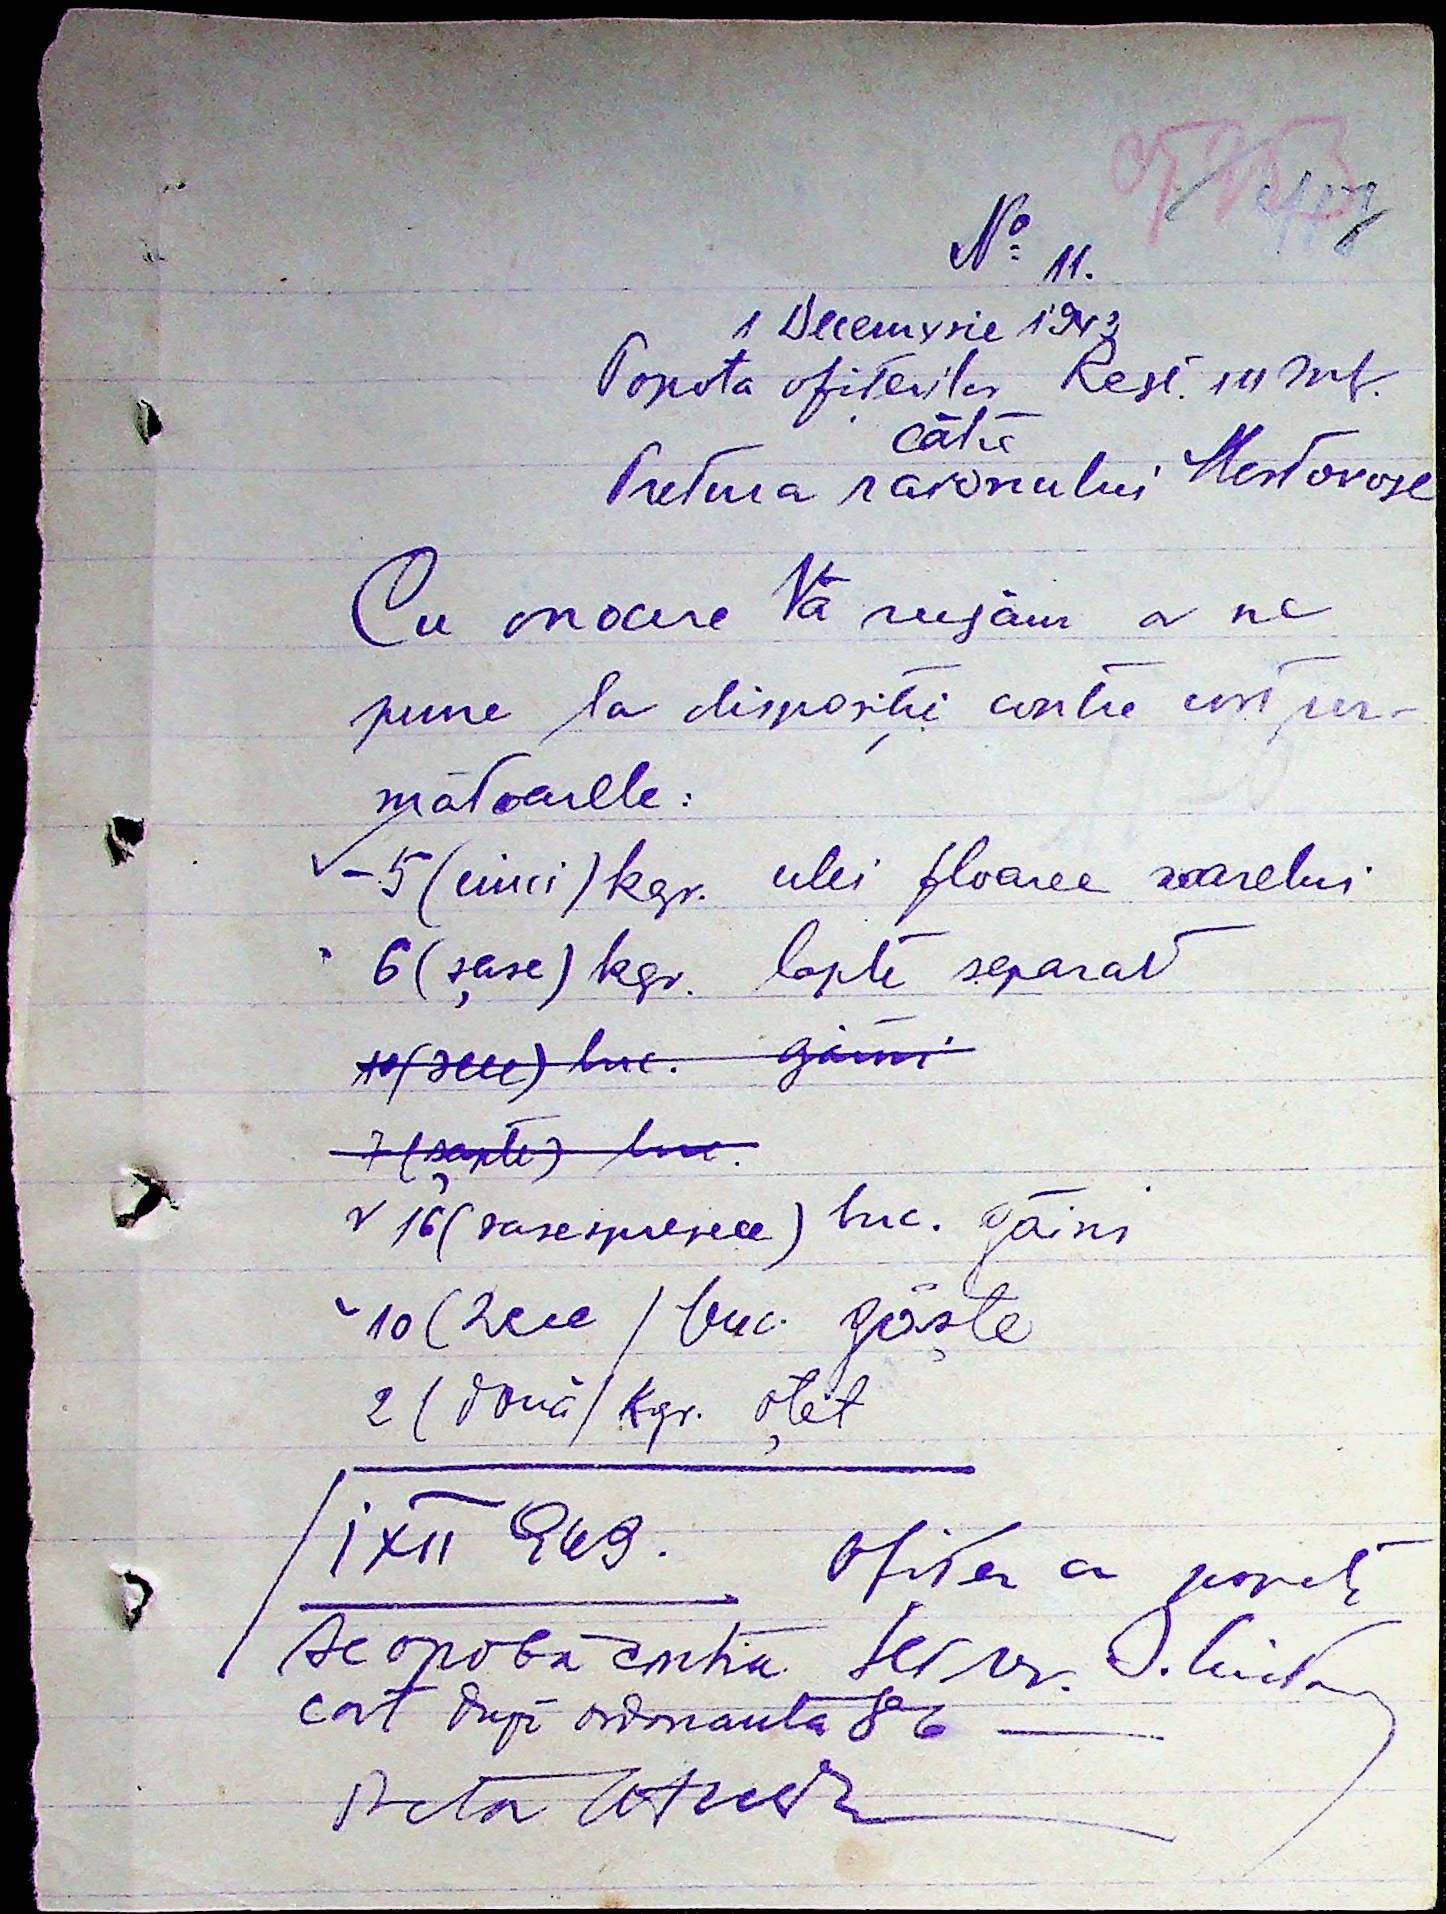 No 11.
1 Decemvrie 1943
Popota ofiterilor Regt. III Inf.
către
Pretura raionului Mostovoie
Cu onoare Vă rugăm a ne
pune la dispoziţi contra cost ur-
mătoarele:
- 5 (cinci) kgr. ulei floarea soarelui
6 (şase) kgr. lapte separat
10 (zece) buc. găini
7 (şapte) buc.
16 (sasesprezece) buc. găini
10 (Zece) buc. gâşte
2 (două) kgr. oţet
1 XII 943.
Ofiter cu popota
Se aprobă contra
cost după ordonanta 86